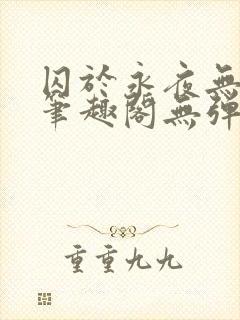 囚於永夜無
筆趣閣無彈
重重九九